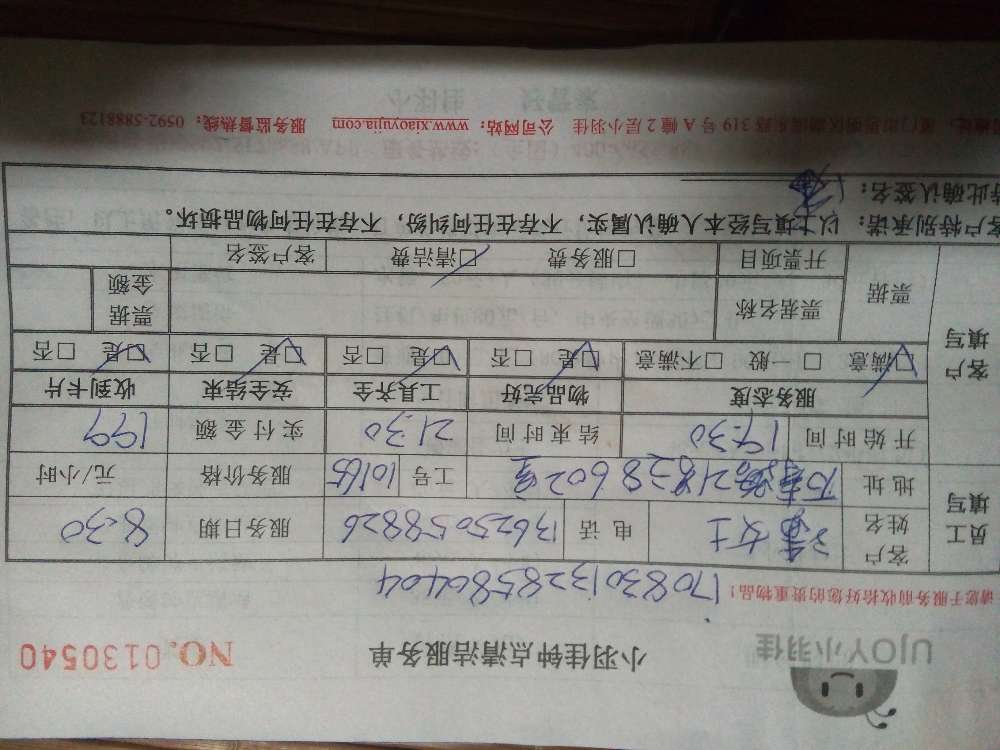 UJOY小羽佳
小羽佳钟点清洁服务单 NO.0130540
请您于服务前收拾好您的贵重物品！ 170830132858 0404
员工填写 客户姓名 女士 电话 13623058826 服务日期 8.30
地址 工号 10165 服务价格 元/小时
开始时间 19:30 结束时间 21:30 实付金额 199
客户填写 服务态度 物品完好 工具齐全 安全结束 收到卡片
☑满意 □一般 □不满意 ☑是 □否 ☑是 □否 ☑是 □否 ☑是 □否
票据 票据名称 票据金额
开票项目 □服务费 ☑清洁费 客户签名
客户特别承诺：以上填写经本人确认属实，不存在任何纠纷，不存在任何物品损坏。
特此确认签名：
319号A幢2层小羽佳 公司网站：www.xiaoyujia.com 服务监督热线：0592-5888123